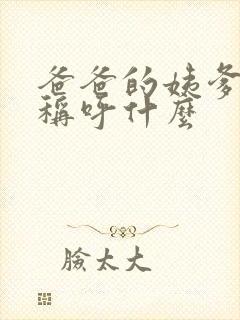 爸爸的姨爹
稱呼什麼
臉太大